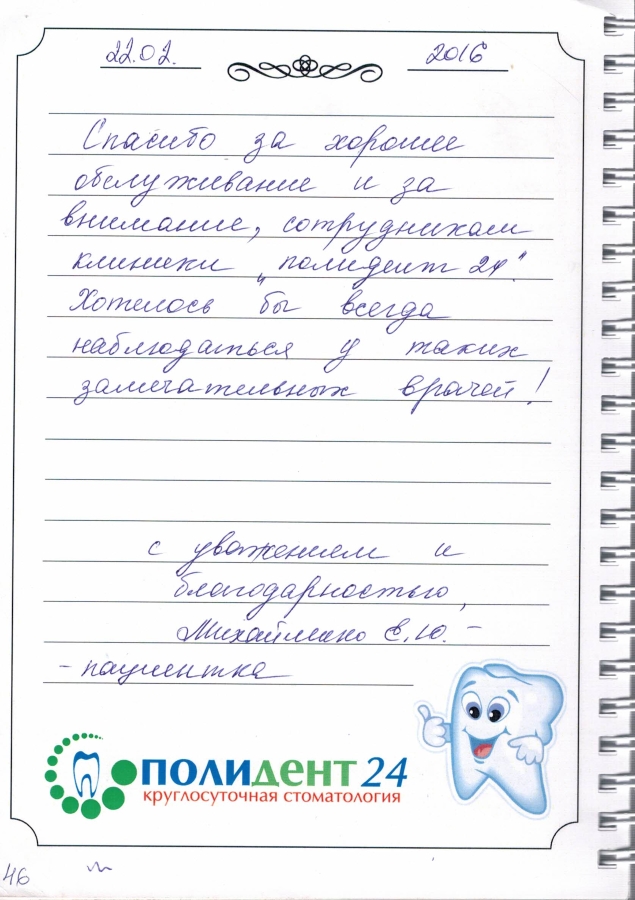 22.02. 2016
Спасибо за хорошее
обслуживание и за
внимание, сотрудникам
клиники „полидент 24".
Хотелось бы всегда
наблюдаться у таких
замечательных врачей!
с уважением и
благодарностью,
Михайленко Е.Ю. –
– пациентка
ПОЛИДЕНТ 24
круглосуточная стоматология
46